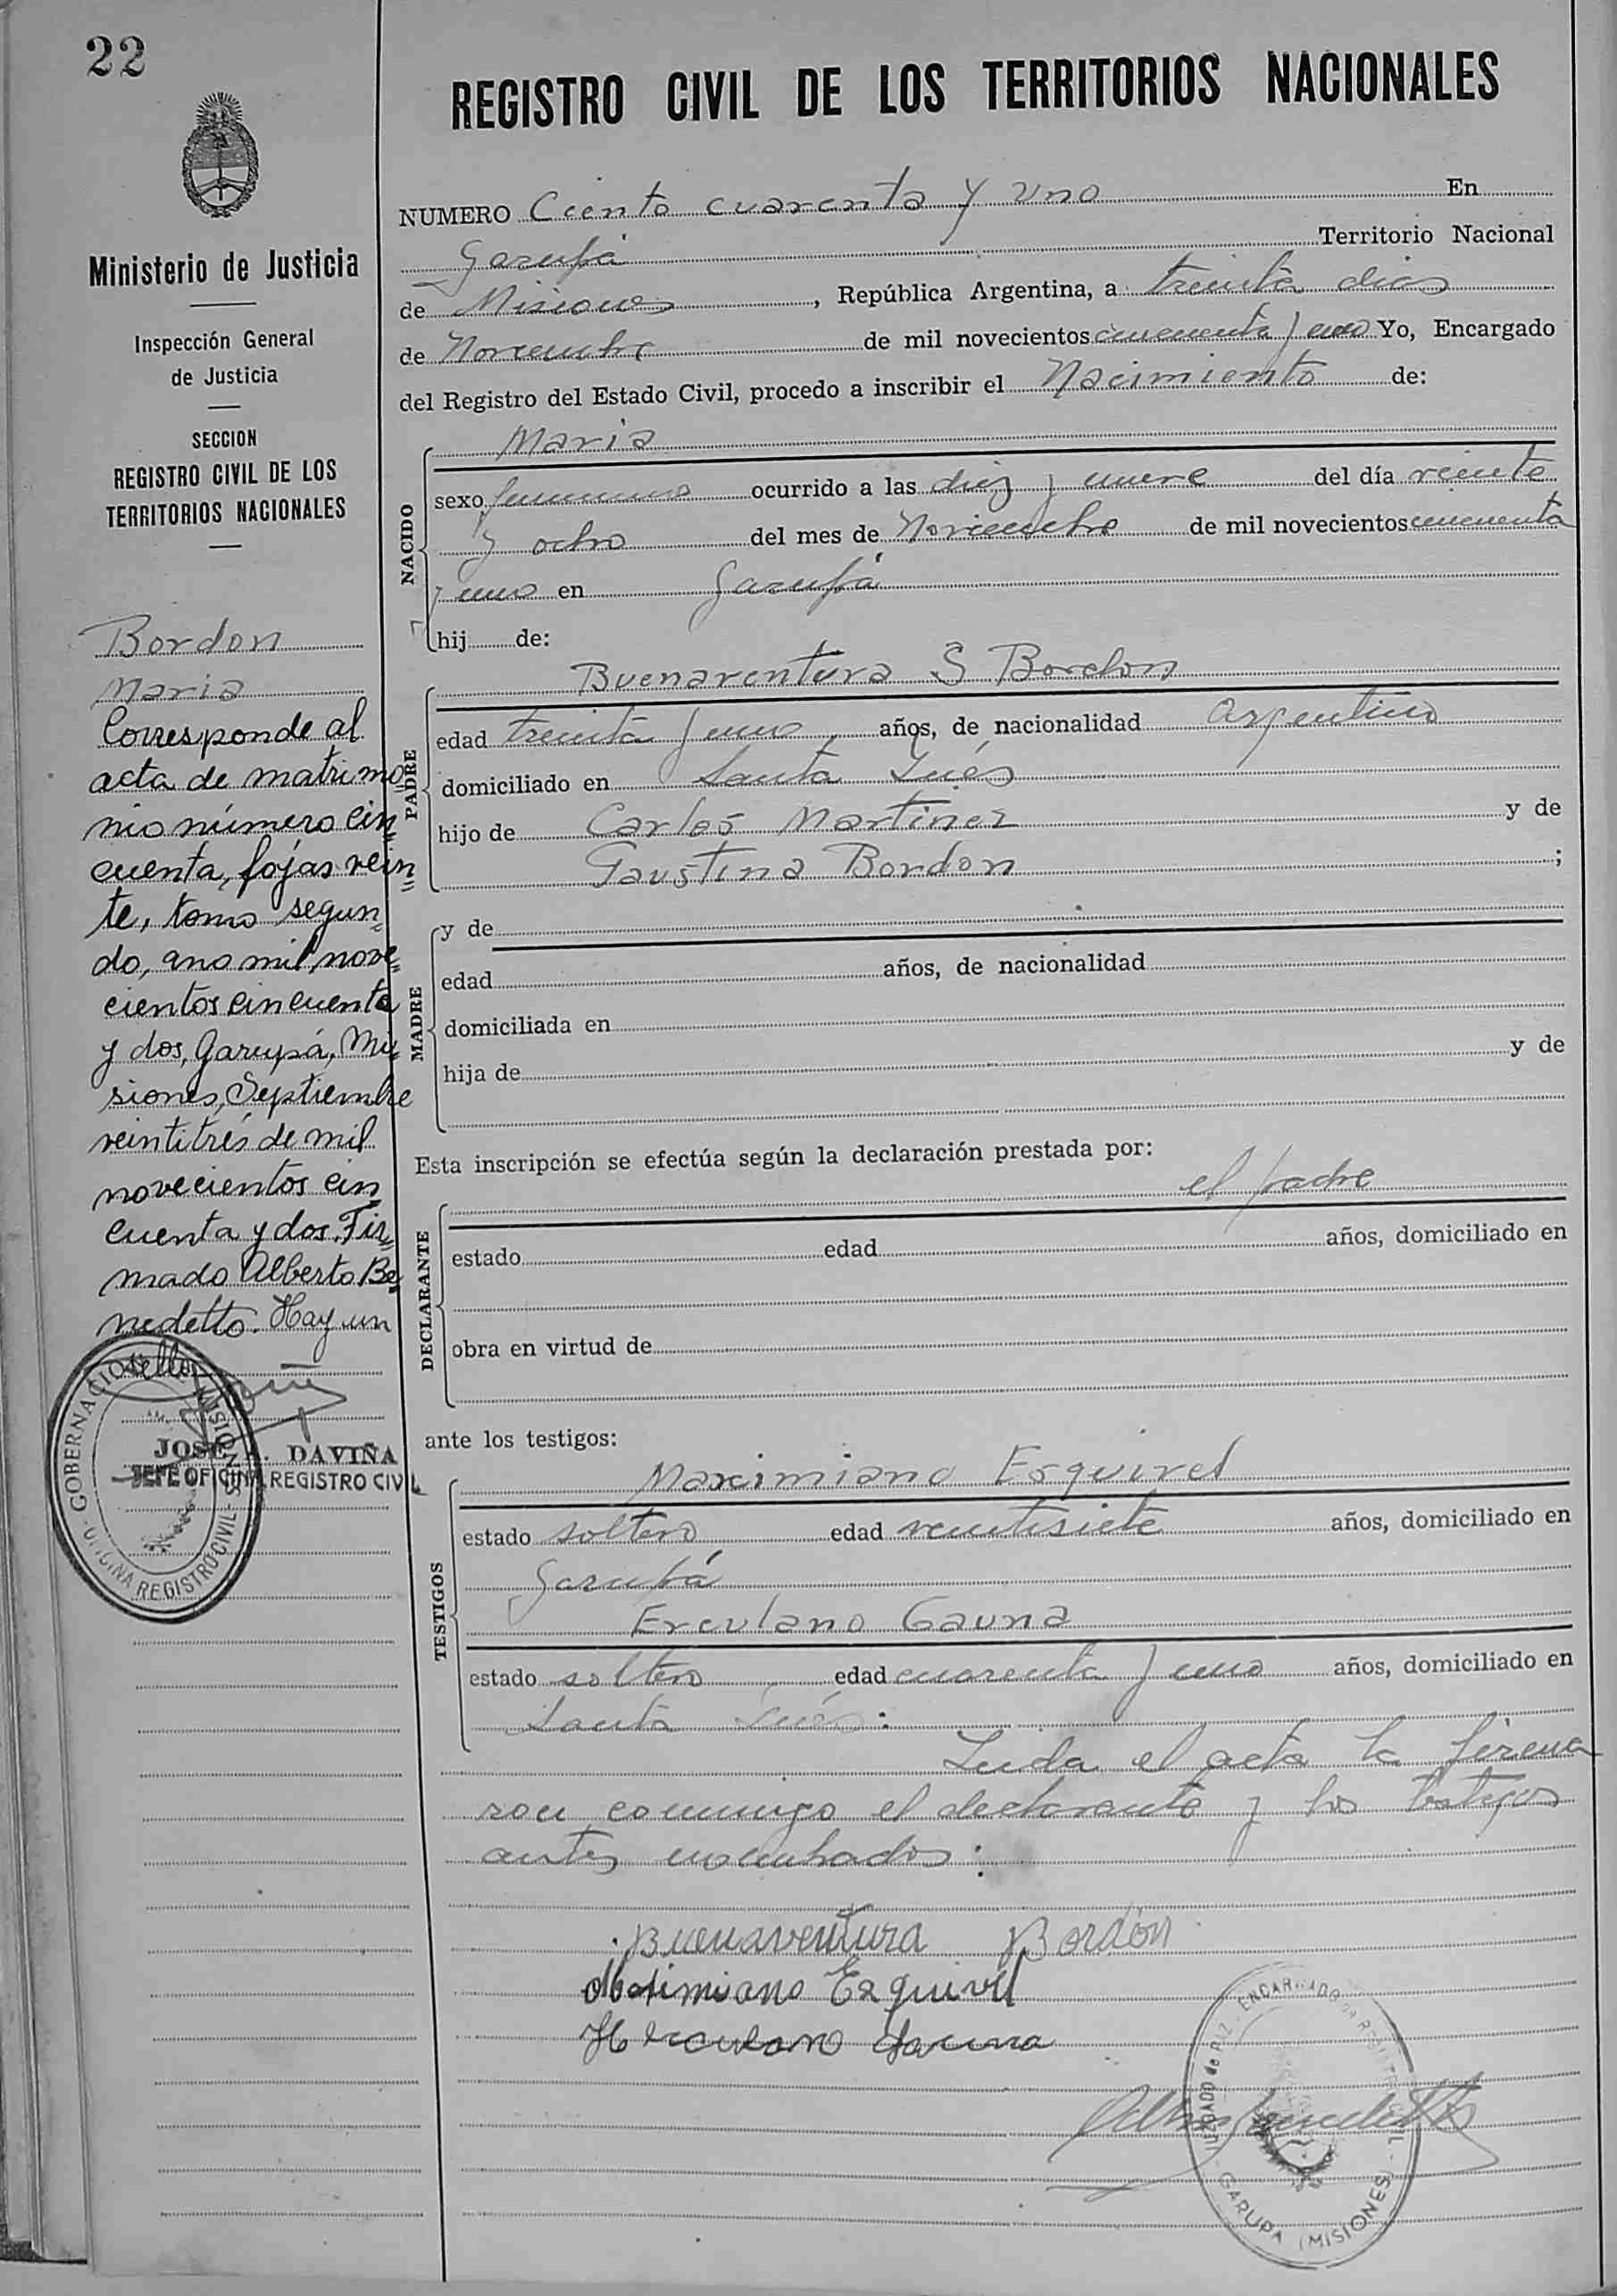 22
REGISTRO CIVIL DE LOS TERRITORIOS NACIONALES
Ministerio de Justicia
Inspección General
de Justicia
SECCION
REGISTRO CIVIL DE LOS
TERRITORIOS NACIONALES
Bordon
Maria
Corresponde al
acta de matrimo
nio número cin
cuenta, fojas vein
te, tomo segun
do, ano mil nove
cientos cincuenta
y dos, Garupá, Mi
siones, Septiembre
veintitrés de mil
novecientos cin
cuenta y dos. Fir
mado Alberto Be
nedetto. Hay un
sello
JOSE . DAVIÑA
JEFE OFICINA REGISTRO CIVIL
GOBERNACION MISIONES
OFICINA REGISTRO CIVIL
NUMERO Ciento cuarenta y uno En
Garupá Territorio Nacional
de Misiones, República Argentina, a treinta dias
de Noviembre de mil novecientos cincuenta y uno Yo, Encargado
del Registro del Estado Civil, procedo a inscribir el Nacimiento de:
NACIDO
Maria
sexo femenino ocurrido a las diez y nueve del día veinte
y ocho del mes de Noviembre de mil novecientos cincuenta
y uno en Garupá
hij de:
PADRE
Buenaventura S Bordon
edad treinta y uno años, de nacionalidad Argentino
domiciliado en Santa Inés
hijo de Carlos Martinez y de
Faustina Bordon ;
MADRE
y de
edad años, de nacionalidad
domiciliada en
hija de y de
Esta inscripción se efectúa según la declaración prestada por:
el padre
DECLARANTE
estado edad años, domiciliado en
obra en virtud de
ante los testigos:
TESTIGOS
Maximiano Esquivel
estado soltero edad veintisiete años, domiciliado en
Garupá
Erculano Gauna
estado soltero edad cuarenta y uno años, domiciliado en
Santa Inés:
Leida el acta la firma
ron conmigo el declarante y los testigos
antes nombrados:
Buenaventura Bordón
Maximiano Esquivel
Herculano Gauna
JUZGADO de PAZ ENCARGADO REGISTRO CIVIL
GARUPA (MISIONES)